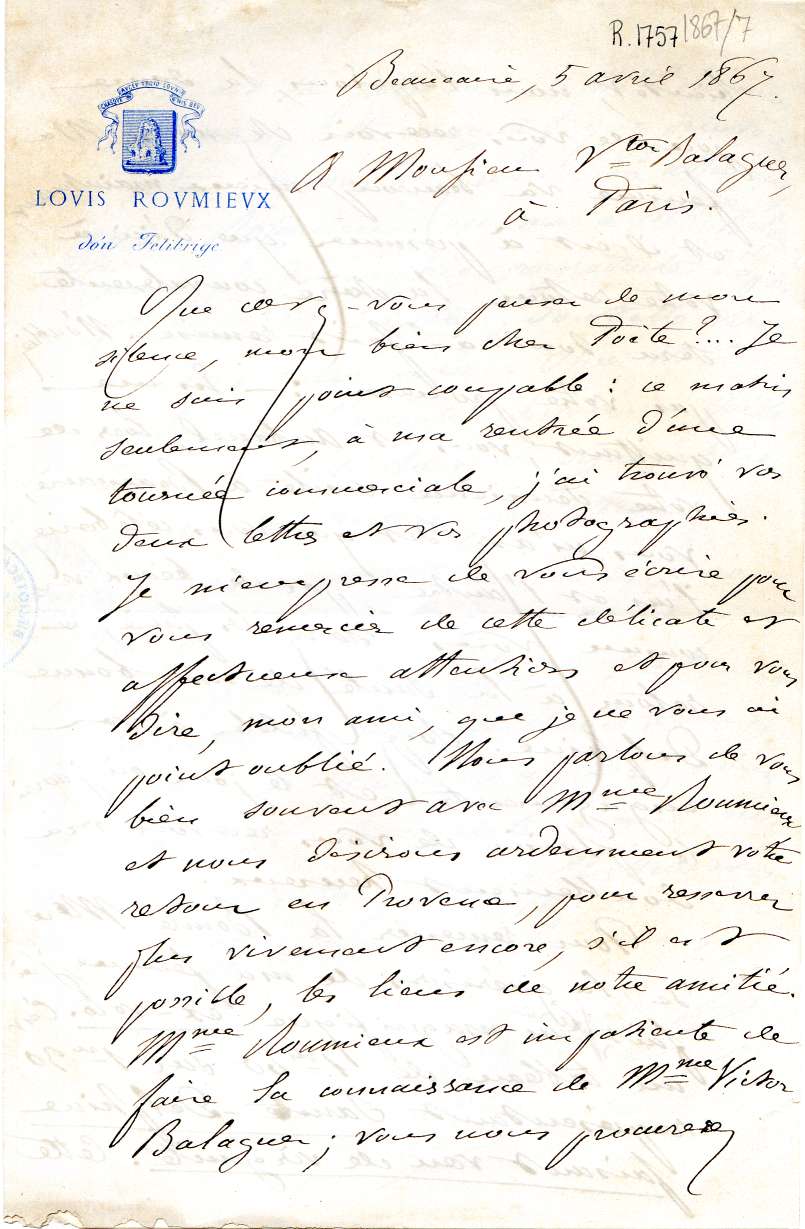 R.1757/1867/7
Beaucaire, 5 avril 1867.
LOVIS ROVMIEVX
dóu Felibrige
A Monsieur Vtor Balaguer,
à Paris.
Que devez-vous penser de mon
silence, mon bien cher Poëte ?... Je
ne suis point coupable : ce matin
seulement, à ma rentrée d'une
tournée commerciale, j'ai trouvé vos
deux lettres et vos photographies.
Je m'empresse de vous écrire pour
vous remercier de cette délicate et
affectueuse attention et pour vous
dire, mon ami, que je ne vous ai
point oublié. Nous parlons de vous
bien souvent avec Mme Roumieux
et nous désirons ardemment votre
retour en Provence, pour resserrer
plus vivement encore, s'il est
possible, les liens de notre amitié.
Mme Roumieux est impatiente de
faire la connaissance de Mme Victor
Balaguer ; vous nous procurerez